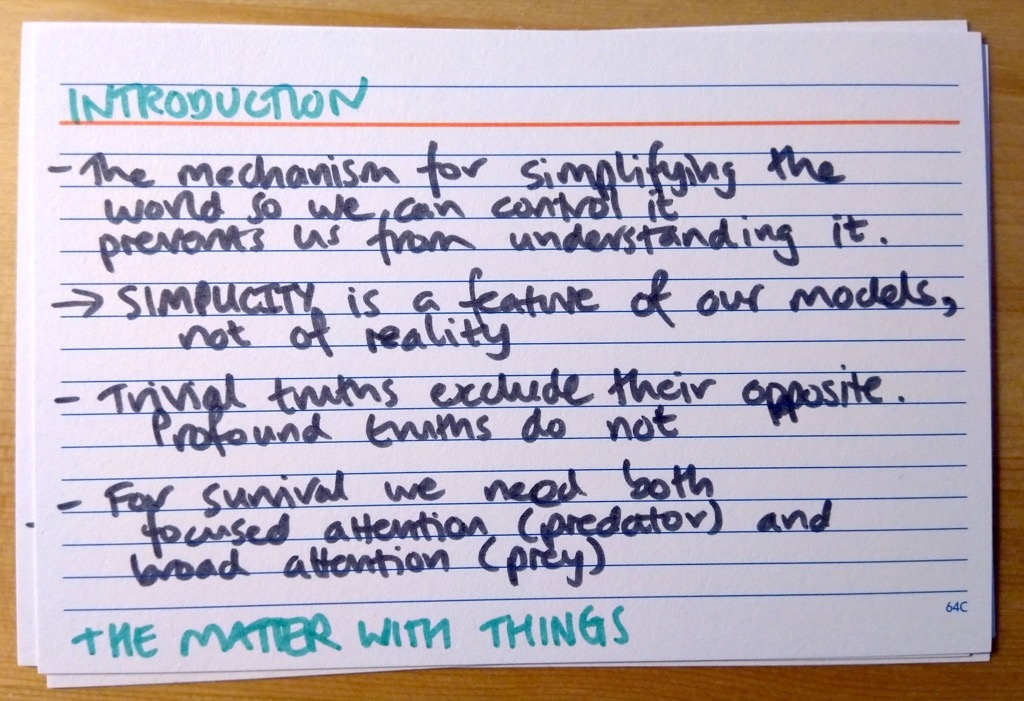 INTRODUCTION
- The mechanism for simplifying the
world so we can control it
prevents us from understanding it.
→ SIMPLICITY is a feature of our models,
not of reality
- Trivial truths exclude their opposite.
Profound truths do not
- For survival we need both
focused attention (predator) and
broad attention (prey)
64C
THE MATTER WITH THINGS